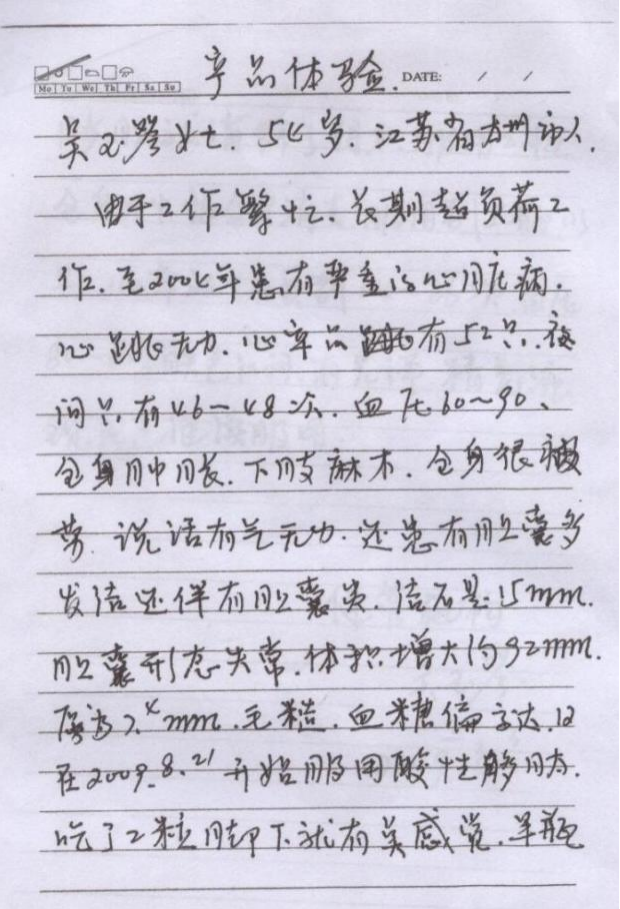 产品体验.
DATE: / /
Mo Tu We Th Fr Sa Su
吴玉琴女士. 54岁. 江苏省 市人.
由于工作繁忙. 长期超负荷工
作. 至2004年患有严重的心脏病.
心跳无力. 心率只跳有52只. 夜
间只有46~48次. 血压60~90、
全身肿胀. 下肢麻木. 全身很疲
劳. 说话有气无力. 还患有胆囊多
发结还伴有胆囊炎. 结石是15mm.
胆囊形态失常. 体积增大约92mm.
厚为 mm. 毛糙. 血糖偏高达.12
在2009.8.21开始服用酸性 肽.
吃了2粒 下就有 感觉. 半瓶